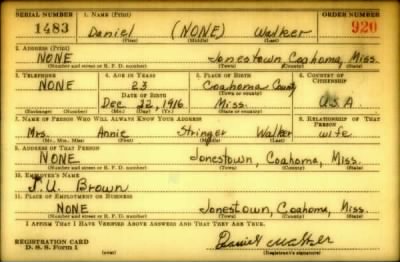 SERIAL NUMBER 1. NAME (Print) ORDER NUMBER
1483 Daniel (NONE) Walker 920
(First) (Middle) (Last)
2. ADDRESS (Print)
NONE Jonestown, Coahoma, Miss.
(Number and street or R. F. D. number) (Town) (County) (State)
3. TELEPHONE 4. AGE IN YEARS 5. PLACE OF BIRTH 6. COUNTRY OF CITIZENSHIP
NONE 23 Coahoma County
DATE OF BIRTH (Town or county)
Dec. 22, 1916 Miss. U.S.A
(Exchange) (Number) (Mo.) (Day) (Yr.) (State or country)
7. NAME OF PERSON WHO WILL ALWAYS KNOW YOUR ADDRESS 8. RELATIONSHIP OF THAT PERSON
Mrs. Annie Stringer Walker wife
(Mr., Mrs., Miss) (First) (Middle) (Last)
9. ADDRESS OF THAT PERSON
NONE Jonestown, Coahoma, Miss.
(Number and street or R. F. D. number) (Town) (County) (State)
10. EMPLOYER'S NAME
J.U. Brown
11. PLACE OF EMPLOYMENT OR BUSINESS
NONE Jonestown, Coahoma, Miss.
(Number and street or R. F. D. number) (Town) (County) (State)
I AFFIRM THAT I HAVE VERIFIED ABOVE ANSWERS AND THAT THEY ARE TRUE.
REGISTRATION CARD
D. S. S. Form 1 Daniel Walker
(Registrant's signature)